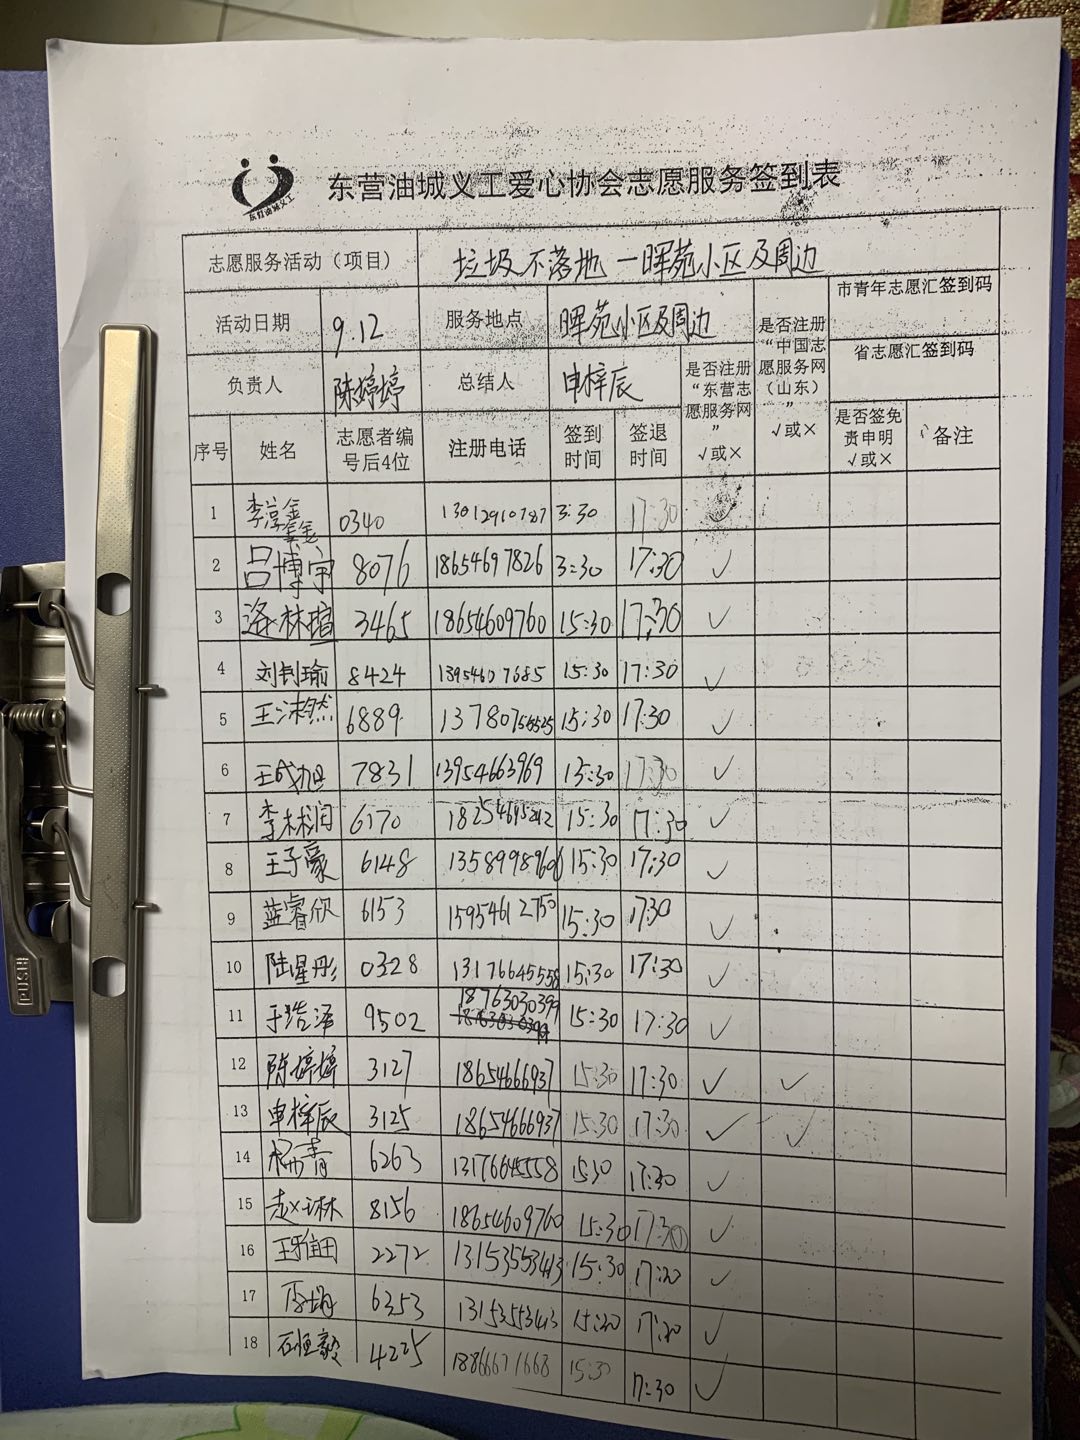 东营油城义工
东营油城义工爱心协会志愿服务签到表
志愿服务活动（项目） 垃圾不落地—晖苑小区及周边
活动日期 9.12 服务地点 晖苑小区及周边 是否注册“中国志愿服务网（山东）” √或× 市青年志愿汇签到码
省志愿汇签到码
负责人 陈婷婷 总结人 申梓辰 是否注册“东营志愿服务网” √或×
序号 姓名 志愿者编号后4位 注册电话 签到时间 签退时间 是否签免责申明 √或× 备注
1 李淳鑫 0340 13012910787 3:30 17:30 ✓
2 吕博宇 8076 18654697826 3:30 17:30 ✓
3 林瑄 3465 18654609760 15:30 17:30 ✓
4 刘钊瑜 8424 18954607685 15:30 17:30 ✓
5 王沐然 6889 13780756525 15:30 17:30 ✓
6 王成旭 7831 13954663969 15:30 17:30 ✓
7 李林润 6170 18254695242 15:30 17:30 ✓
8 王子豪 6148 13589989606 15:30 17:30 ✓
9 蓝睿欣 6153 15954612750 15:30 17:30 ✓
10 陆星彤 0328 13176645558 15:30 17:30 ✓
11 于浩泽 9502 18763030399 15:30 17:30 ✓
12 陈婷婷 3127 18654666937 15:30 17:30 ✓ ✓
13 申梓辰 3125 18654666937 15:30 17:30 ✓ ✓
14 杨青 6263 13176645558 15:30 17:30 ✓
15 赵琳 8156 18654609760 15:30 17:30 ✓
16 王雅田 2272 13153553413 15:30 17:30 ✓
17 6353 13153553413 15:30 17:30 ✓
18 石恒毅 4225 18866671668 15:30 17:30 ✓
PUSH